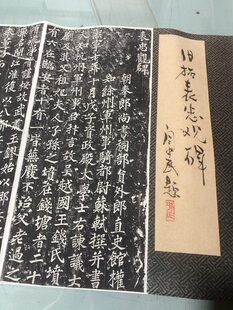 旧拓表忠观碑
表忠觀碑
朝奉郎尚書祠部員外郎直史館權
知徐州軍州事騎都尉蘇軾撰并書
熙寧十年十月戊子資政殿大學士右諫議大
夫知杭州軍州事臣抃言故吳越國王錢氏墳
廟及其父祖妃夫人子孫之墳在錢塘者二十
有六在臨安者十有一皆蕪廢不治父老過之
有流涕者謹按故武肅王鏐始以鄉兵